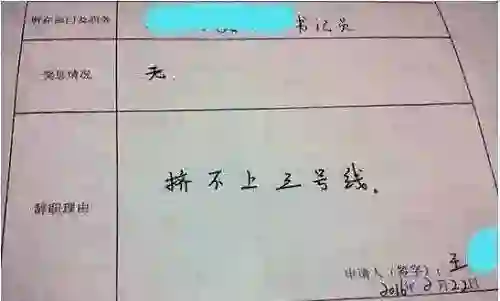 所在部门及职务 书记员
奖惩情况 无.
辞职理由 挤不上三号线.
申请人（签字）: 王
2016年2月22日